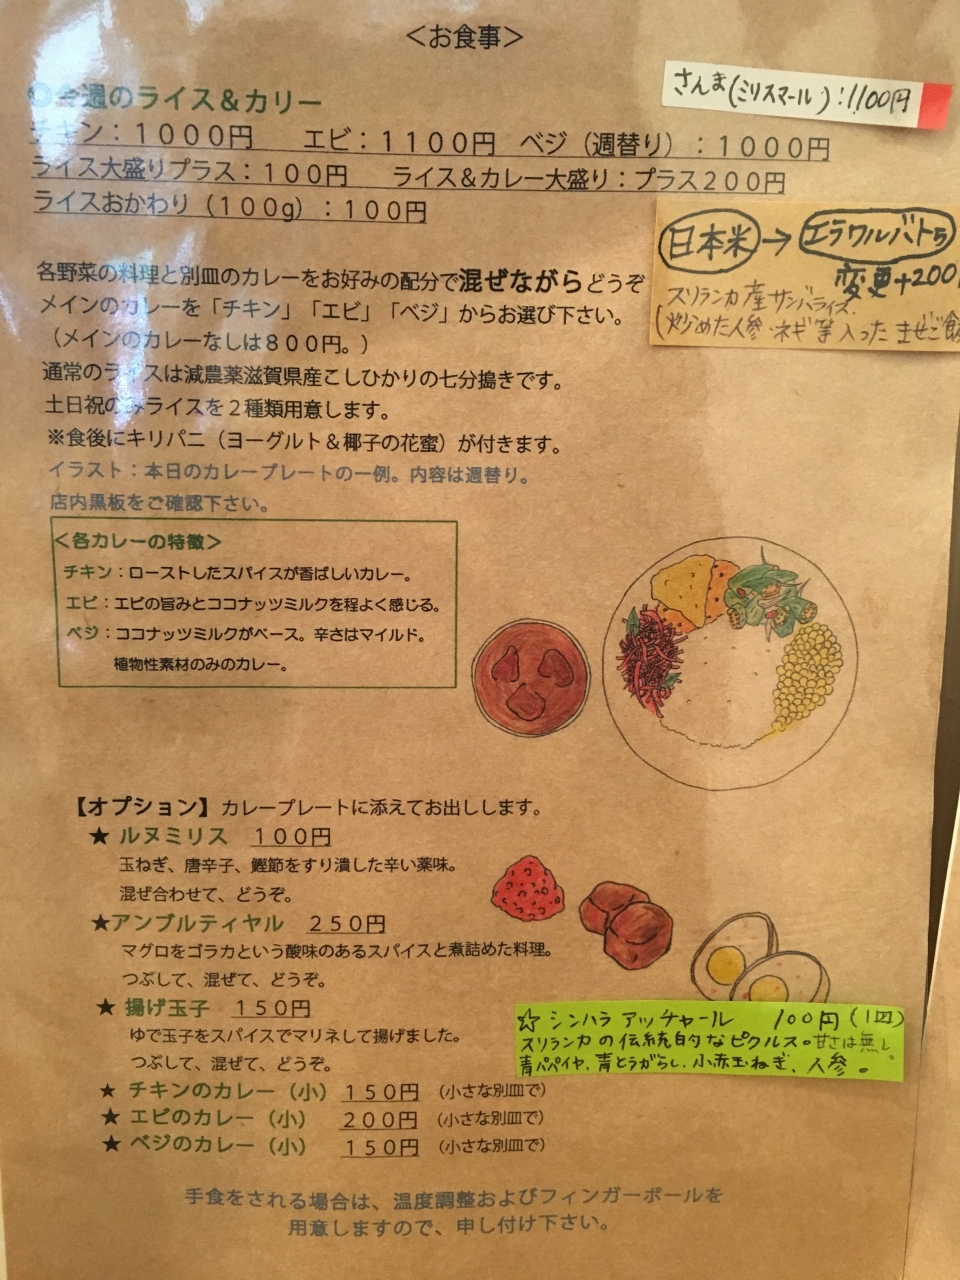 ＜お食事＞
今週のライス＆カリー
さんま(ミリスマール):1100円
チキン：１０００円　エビ：１１００円　ベジ（週替り）：１０００円
ライス大盛りプラス：１００円　ライス＆カレー大盛り：プラス２００円
ライスおかわり（１００g）：１００円
日本米→エラワルバトら
変更+200
スリランカ産サンバライス.
(炒めた人参・ネギ等入った まぜご飯
各野菜の料理と別皿のカレーをお好みの配分で混ぜながらどうぞ
メインのカレーを「チキン」「エビ」「ベジ」からお選び下さい。
（メインのカレーなしは８００円。）
通常のライスは減農薬滋賀県産こしひかりの七分搗きです。
土日祝のみライスを２種類用意します。
※食後にキリパニ（ヨーグルト＆椰子の花蜜）が付きます。
イラスト：本日のカレープレートの一例。内容は週替り。
店内黒板をご確認下さい。
＜各カレーの特徴＞
チキン：ローストしたスパイスが香ばしいカレー。
エビ：エビの旨みとココナッツミルクを程よく感じる。
ベジ：ココナッツミルクがベース。辛さはマイルド。
植物性素材のみのカレー。
【オプション】カレープレートに添えてお出しします。
★ ルヌミリス　１００円
玉ねぎ、唐辛子、鰹節をすり潰した辛い薬味。
混ぜ合わせて、どうぞ。
★アンブルティヤル　２５０円
マグロをゴラカという酸味のあるスパイスと煮詰めた料理。
つぶして、混ぜて、どうぞ。
★ 揚げ玉子　１５０円
ゆで玉子をスパイスでマリネして揚げました。
つぶして、混ぜて、どうぞ。
☆ シンハラ アッチャール　100円(1皿)
スリランカの伝統的なピクルス。甘さは無し。
青パパイヤ、青とうがらし、小赤玉ねぎ、人参。
★ チキンのカレー（小）１５０円（小さな別皿で）
★ エビのカレー（小）２００円（小さな別皿で）
★ ベジのカレー（小）１５０円（小さな別皿で）
手食をされる場合は、温度調整およびフィンガーボールを
用意しますので、申し付け下さい。